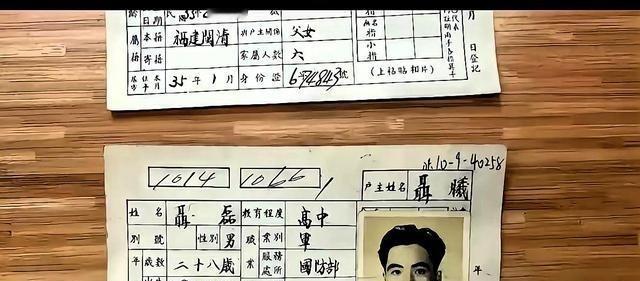 齡 日期 民 35年
屬 本籍 福建閩清 與戶主關係 父女
籍 寄籍 家屬人數 六
居住本市年月 35年1月 身份證 6794843號
(上格貼相片)
指
兩名指
小指
月 日登記
北10-9-40258
1014 1066
戶主姓名 聶曦
姓名 聶磊 教育程度 高中
別號 性別 男 職業 業別 軍
年齡 歲數 二十八歲 服務處所 國防部
年